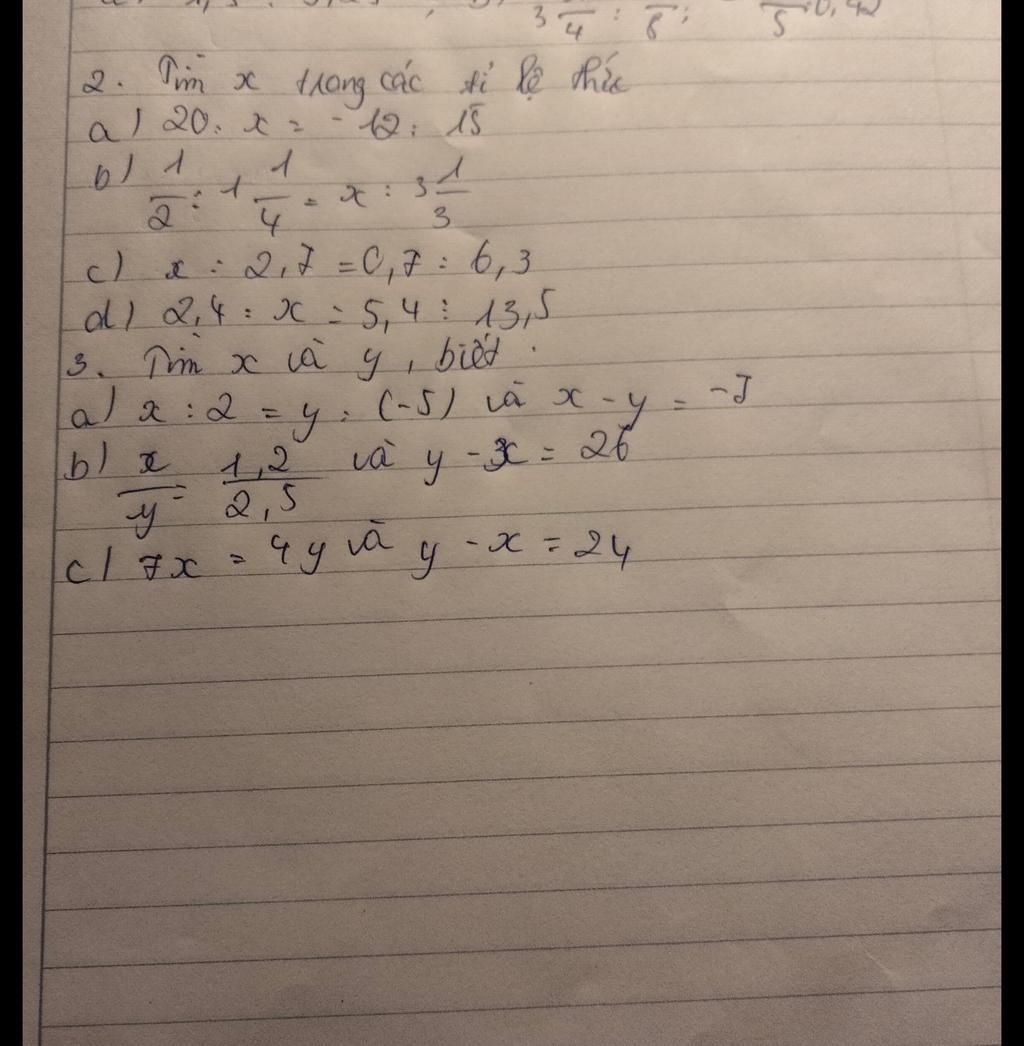 3 — : — ; — : 0,42
4 6 5
2. Tìm x trong các tỉ lệ thức
a) 20 : x = -12 : 15
b) 1/2 : 1 1/4 = x : 3 1/3
c) x : 2,7 = 0,7 : 6,3
d) 2,4 : x = 5,4 : 13,5
3. Tìm x và y, biết.
a) x : 2 = y : (-5) và x - y = -7
b) x/y = 1,2/2,5 và y - x = 26
c) 7x = 4y và y - x = 24